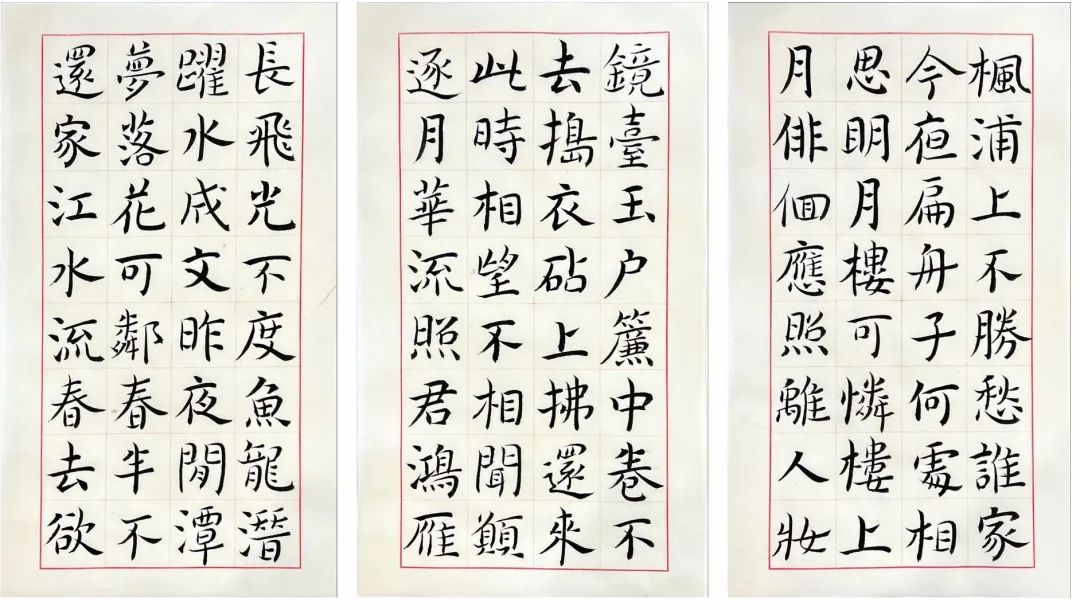 楓浦上不勝愁誰家
今夜扁舟子何處相
思明月樓可憐樓上
月俳佪應照離人妝
鏡臺玉户簾中卷不
去搗衣砧上拂還來
此時相望不相聞願
逐月華流照君鴻雁
長飛光不度魚龍潛
躍水成文昨夜閒潭
夢落花可鄰春半不
還家江水流春去欲